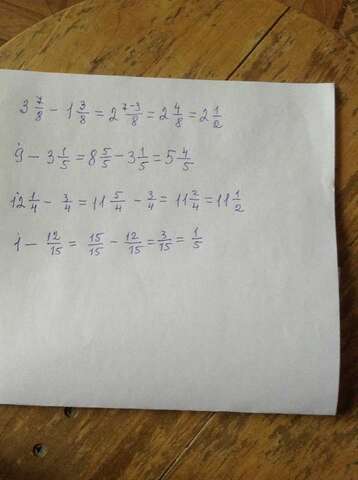 3 7/8 - 1 3/8 = 2 7-3/8 = 2 4/8 = 2 1/2
9 - 3 1/5 = 8 5/5 - 3 1/5 = 5 4/5
12 1/4 - 3/4 = 11 5/4 - 3/4 = 11 2/4 = 11 1/2
1 - 12/15 = 15/15 - 12/15 = 3/15 = 1/5